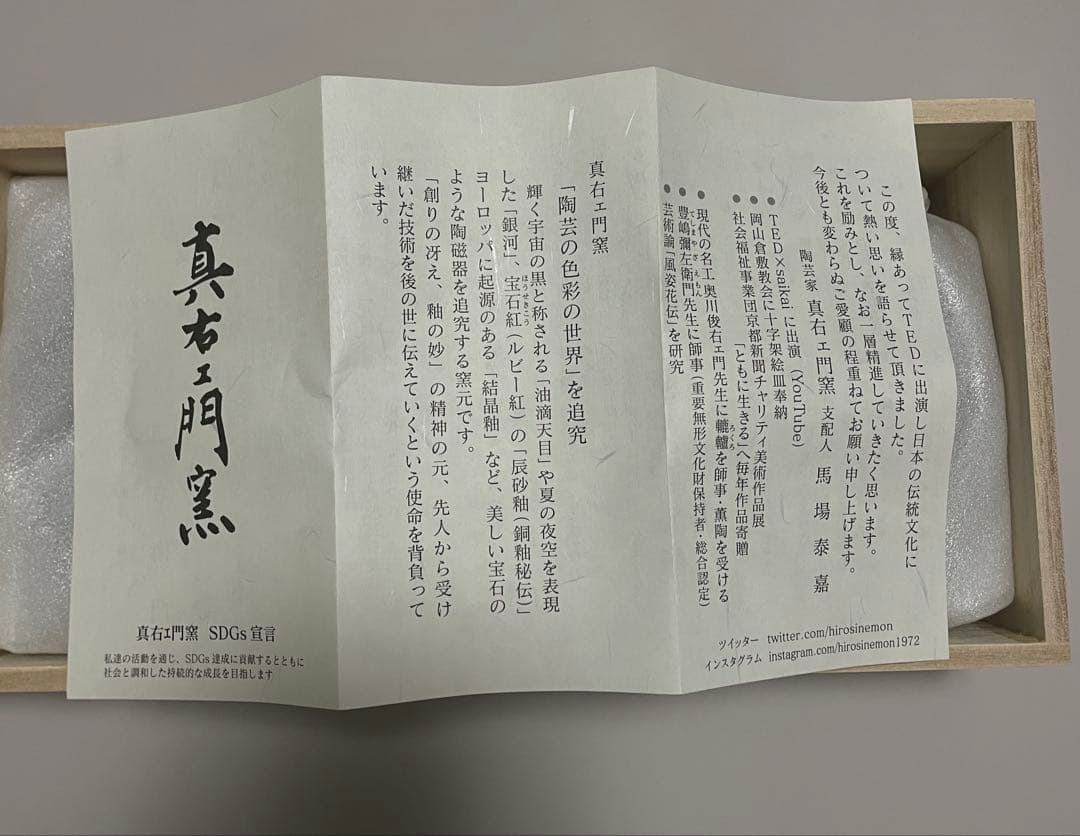 この度、縁あってTEDに出演し日本の伝統文化に
ついて熱い思いを語らせて頂きました。
これを励みとし、なお一層精進していきたく思います。
今後とも変わらぬご愛顧の程重ねてお願い申し上げます。
陶芸家 真右ェ門窯 支配人 馬場泰嘉
● TED×saikai に出演（YouTube）
● 岡山倉敷教会に十字架絵皿奉納
● 社会福祉事業団京都新聞チャリティ美術作品展
「ともに生きる」へ毎年作品寄贈
● 現代の名工奥川俊右ェ門先生に轆轤を師事・薫陶を受ける
ろくろ
● 豊嶋彌左衛門先生に師事（重要無形文化財保持者・総合認定）
てしまやざえもん
● 芸術論「風姿花伝」を研究
ツイッター twitter.com/hirosinemon
インスタグラム instagram.com/hirosinemon1972
真右ェ門窯
「陶芸の色彩の世界」を追究
輝く宇宙の黒と称される「油滴天目」や夏の夜空を表現
した「銀河」、宝石紅（ルビー紅）の「辰砂釉（銅釉秘伝）」
ほうせきこう
ヨーロッパに起源のある「結晶釉」など、美しい宝石の
ような陶磁器を追究する窯元です。
「創りの冴え、釉の妙」の精神の元、先人から受け
継いだ技術を後の世に伝えていくという使命を背負って
います。
真右ェ門窯
真右ェ門窯 SDGs宣言
私達の活動を通じ、SDGs達成に貢献するとともに
社会と調和した持続的な成長を目指します